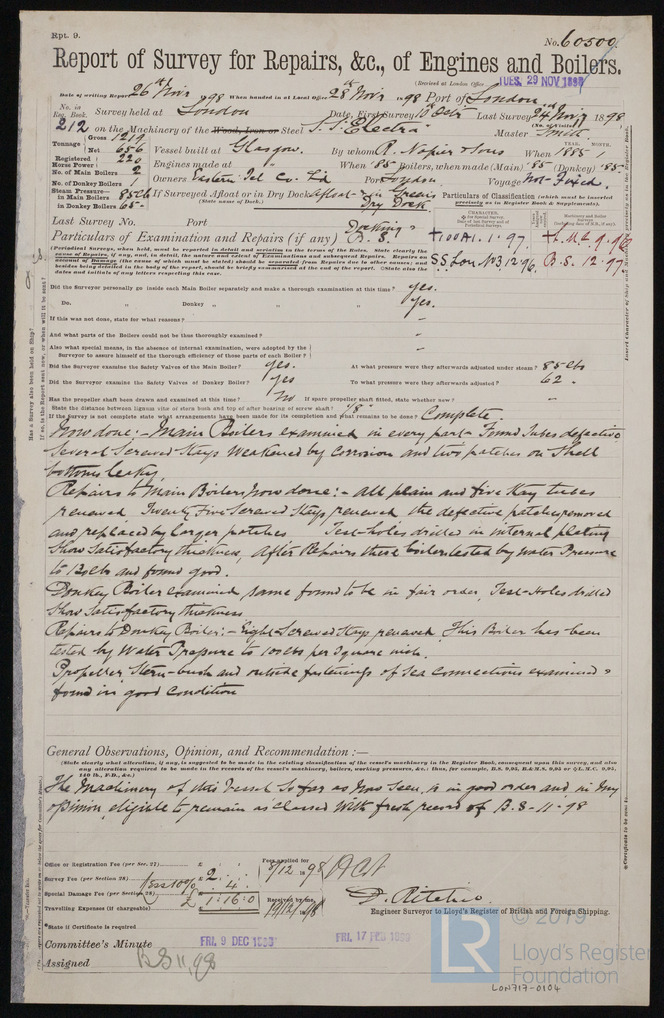 Rpt. 9.
No. 60500
Report of Survey for Repairs, &c., of Engines and Boilers.
(Received at London Office TUES. 29 NOV 1898
Date of writing Report 26th Novr 1898 When handed in at Local Office 28th Novr 1898 Port of London
No. in Reg. Book. Survey held at London Date, First Survey 10 Octr Last Survey 24 Novr 1898
(No. of Visits)
212 on the Machinery of the Wood, Iron or Steel S.S. Electra Master Smith
Tonnage Gross 1219 Net 656 Vessel built at Glasgow. By whom R. Napier & Sons When 1885
YEAR. MONTH.
Registered Horse Power 220 Engines made at " When '85 Boilers, when made (Main) '85 (Donkey) '85
No. of Main Boilers 2 Owners Eastern Tel Co. Ld Port London Voyage Not Fixed.
No. of Donkey Boilers 1
Steam Pressure in Main Boilers 85 lb in Donkey Boilers 65 If Surveyed Afloat or in Dry Dock Afloat & in Greens Dry Dock
(State name of Dock.)
Particulars of Classification (which must be inserted precisely as in Register Book & Supplements).
Last Survey No. Port
Particulars of Examination and Repairs (if any) Docking & B.S.
+100A1. 1. 97. +L.M.C. 9. 96
SS Lon No3, 12. 96. B.S. 12. 97
Did the Surveyor personally go inside each Main Boiler separately and make a thorough examination at this time? yes.
Do. " Donkey " " " yes.
If this was not done, state for what reasons? "
And what parts of the Boilers could not be thus thoroughly examined? "
Also what special means, in the absence of internal examination, were adopted by the Surveyor to assure himself of the thorough efficiency of those parts of each Boiler? "
Did the Surveyor examine the Safety Valves of the Main Boiler? yes. At what pressure were they afterwards adjusted under steam? 85 lbs
Did the Surveyor examine the Safety Valves of Donkey Boiler? yes To what pressure were they afterwards adjusted? 62 "
Has the propeller shaft been drawn and examined at this time? No If spare propeller shaft fitted, state whether new? "
State the distance between lignum vitæ of stern bush and top of after bearing of screw shaft? 1/8"
If the Survey is not complete state what arrangements have been made for its completion and what remains to be done? Complete.
Now done:- Main Boilers examined in every part. Found Tubes defective
Several Screwed Stays weakened by Corrosion and two patches on Shell
bottoms leaky
Repairs to Main Boilers, now done:- All plain and five Stay tubes
renewed Twenty Five Screwed Stays renewed the defective patches removed
and replaced by larger patches Test-holes drilled in internal plating
Show Satisfactory thickness, After Repairs these boilers tested by water Pressure
to 130 lbs and found good.
Donkey Boiler examined same found to be in fair order, Test-Holes drilled
Show Satisfactory thickness
Repairs to Donkey Boiler:- Eight Screwed Stays renewed. This Boiler has been
tested by Water Pressure to 100 lbs per Square inch.
Propeller Stern-bush and outside fastenings of Sea Connections examined &
found in good condition
General Observations, Opinion, and Recommendation:—
(State clearly what alteration, if any, is suggested to be made in the existing classification of the vessel's machinery in the Register Book, consequent upon this survey, and also
any alteration required to be made in the records of the vessel's machinery, boilers, working pressures, &c.: thus, for example, B.S. 9,95, B.&M.S. 9,95 or L.M.C. 9,95,
140 lb., F.D., &c.)
The Machinery of this Vessel So far as Now Seen, is in good order and in my
opinion, eligible to remain as classed With fresh record of B.S-11-98
Office or Registration Fee (per Sec. 27) £ Fees applied for 8/12 1898
Survey Fee (per Section 28) £ 2
Special Damage Fee (per Section 28) less 10% 4
£ 1:16:0 Received by me,
Travelling Expenses (if chargeable) £ 1898
D. Ritchie.
Engineer Surveyor to Lloyd's Register of British and Foreign Shipping.
*State if Certificate is required
Committee's Minute FRI. 9 DEC 1898 FRI. 17 FEB 1899
Assigned BS 11,98
© 2019
LR
Lloyd's Register
Foundation
LON717-0104